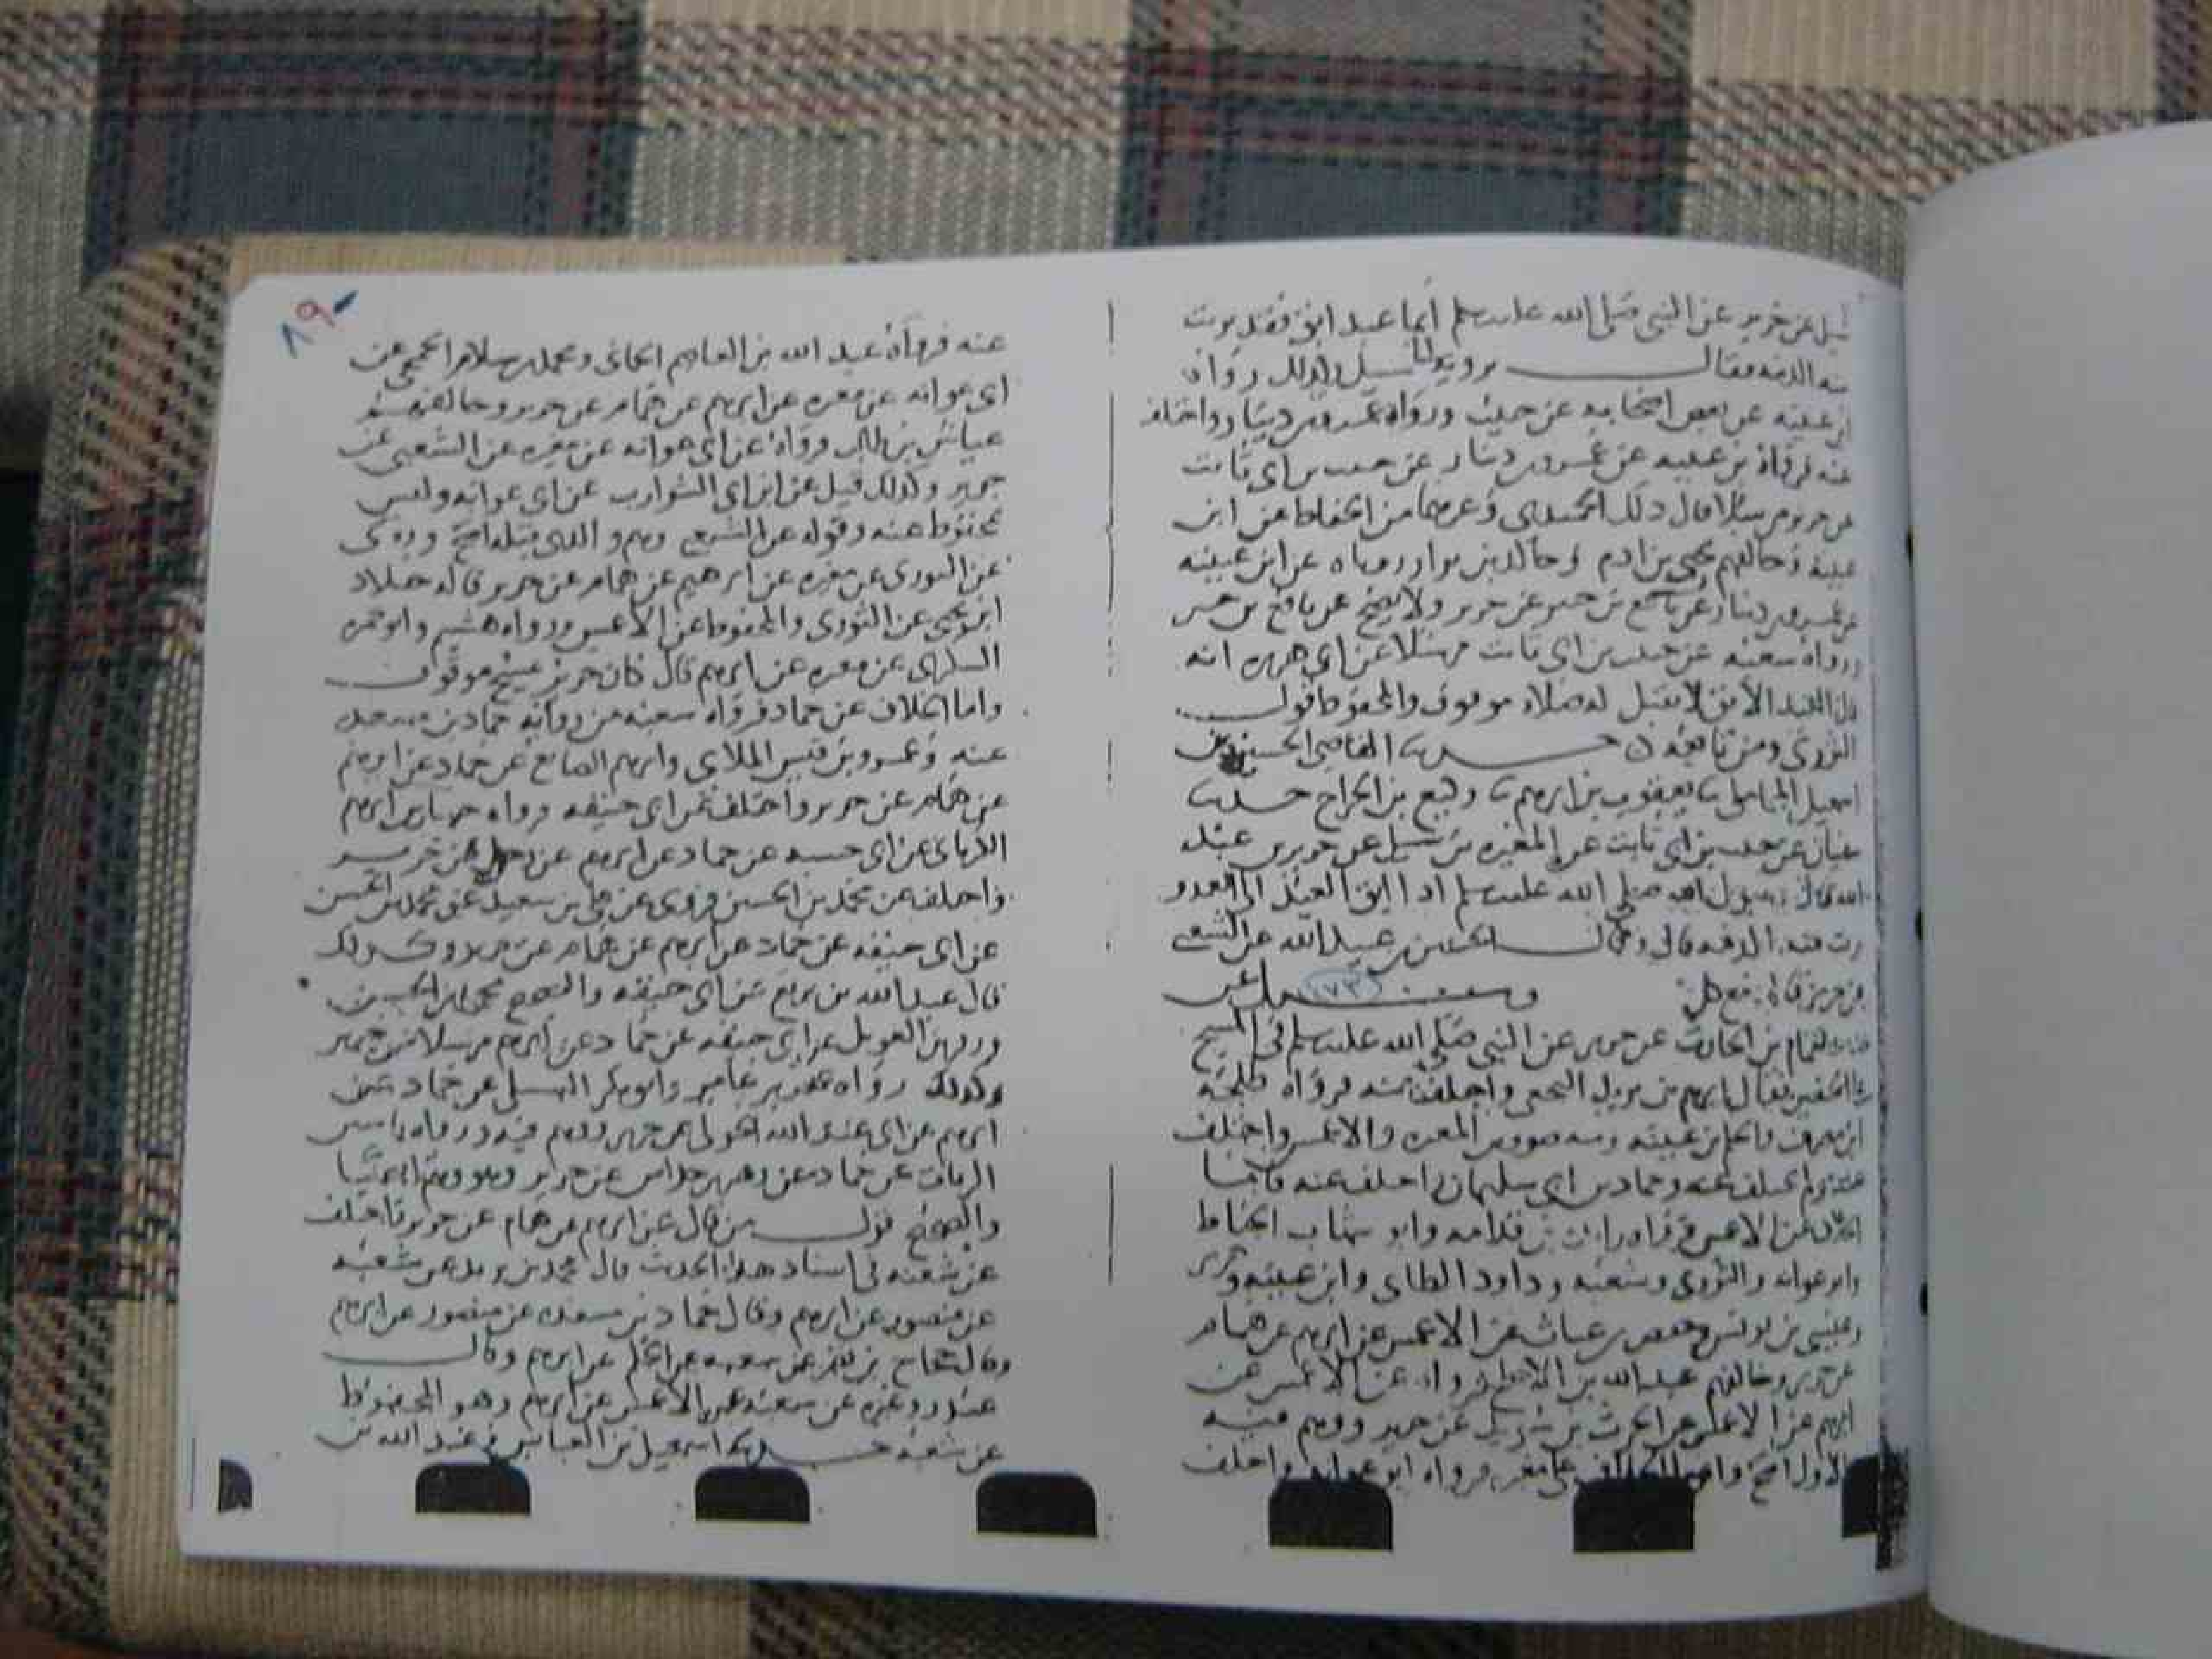 شبل عن جرير عن النبي صلى الله عليه وسلم أيما عبد ابق فقد برئت
منه الذمة فقال يرويه وكذلك رواه
ابن عيينة عن بعض اصحابه عن حبيب ورواه عمرو بن دينار واختلف
عنه فرواه بن عيينة عن عمرو بن دينار عن حبيب بن ابي ثابت
عن جرير مرسلا قال ذلك الحميدي وغيره من الحفاظ عن ابن
عيينة وخالفهم يحيى بن ادم وخالد بن نزار روياه عن ابن عيينة
عن عمرو بن دينار عن نافع بن جبير عن جرير ولا يصح عن نافع بن جبير
ورواه شعبة عن حبيب بن ابي ثابت مرسلا عن ابي هريرة انه
قال العبد الآبق لا يقبل له صلاة موقوف والمحفوظ قول
الثوري ومن تابعه حدثنا القاضي الحسين بن
اسمعيل المحاملي نا يعقوب بن ابرهيم نا وكيع بن الجراح حدثنا
سفيان عن حبيب بن ابي ثابت عن المغيرة بن شبل عن جرير بن عبد
الله قال رسول الله صلى الله عليه وسلم اذا ابق العبد الى العدو
برئت منه الذمة قال وقال الحسن بن عبيد الله عن الشعبي
عن جرير
وسئل عن ١٧٣
همام بن الحارث عن جرير عن النبي صلى الله عليه وسلم في المسح
على الخفين فقال ابرهيم بن يزيد النخعي واختلف عنه فرواه طلحة
ابن مصرف والحكم بن عيينة ومنصور والمغيرة والاعمش واختلف
عنه ولم يختلف عنه وحماد بن ابي سليمان واختلف عنه فاما
عن الاعمش فرواه زائدة بن قدامة وابو شهاب الحناط
وابو عوانة والثوري وشعبة وداود الطائي وابن عيينة وجرير
وعيسى بن يونس وحفص بن غياث عن الاعمش عن ابرهيم عن همام
عن جرير وخالفهم عبد الله بن الاجلح فرواه عن الاعمش عن
ابرهيم عن الحرث بن سويد عن جرير ووهم فيه
والاول اصح واما الخلاف على مغيرة فرواه ابو عوانة واختلف
عنه فرواه عبد الله بن العاصم الحماني ومحمد بن سلام الجمحي عن
ابي عوانة عن مغيرة عن ابرهيم عن همام عن جرير وخالفهم
عياش بن طالب ورواه عن ابي عوانة عن مغيرة عن الشعبي عن
جرير وكذلك قيل عن ابن ابي الشوارب عن ابي عوانة وليس
بمحفوظ عنه وقوله عن الشعبي وهم والذي قبله اصح وروي
عن الثوري عن مغيرة عن ابرهيم عن همام عن جرير قاله خلاد
ابن يحيى عن الثوري والمحفوظ عن الاعمش ورواه هشيم وابو حمزة
السكري عن مغيرة عن ابرهيم قال كان جرير يمسح موقوف
واما الخلاف عن حماد فرواه شعبة من رواية حماد بن مسعدة
عنه وعمرو بن قيس الملائي وابرهيم الصائغ عن حماد عن ابرهيم
عن همام عن جرير واختلف عن ابي حنيفة فرواه حسان بن ابرهيم
الكرماني عن ابي حنيفة عن حماد عن ابرهيم عن رجل عن جرير
واختلف عن محمد بن الحسن فروي عن بن سعيد عن محمد بن الحسن
عن ابي حنيفة عن حماد عن ابرهيم عن همام عن جرير وكذلك
قال عبد الله بن بزيع عن ابي حنيفة والصحيح محمد بن الحسن
عن ابي حنيفة عن حماد عن ابرهيم مرسلا عن جرير
وكذلك رواه وابو بكر النهشلي عن حماد عن
ابرهيم عن ابي عبد الله عن جرير ووهم فيه ورواه ياسين
الزيات عن حماد عن عن جرير وهو وهم ايضا
والصحيح قول من قال عن ابرهيم عن همام عن جرير واختلف
عن شعبة في اسناد هذا الحديث قال محمد بن عن شعبة
عن منصور عن ابرهيم وقال حماد بن مسعدة عن منصور عن ابرهيم
وقال بن عن شعبة عن الحكم عن ابرهيم وقال
غندر وغيره عن شعبة عن الاعمش عن ابرهيم وهو المحفوظ
عن شعبة حدثنا اسمعيل بن العباس بن عبد الله بن
٨٩